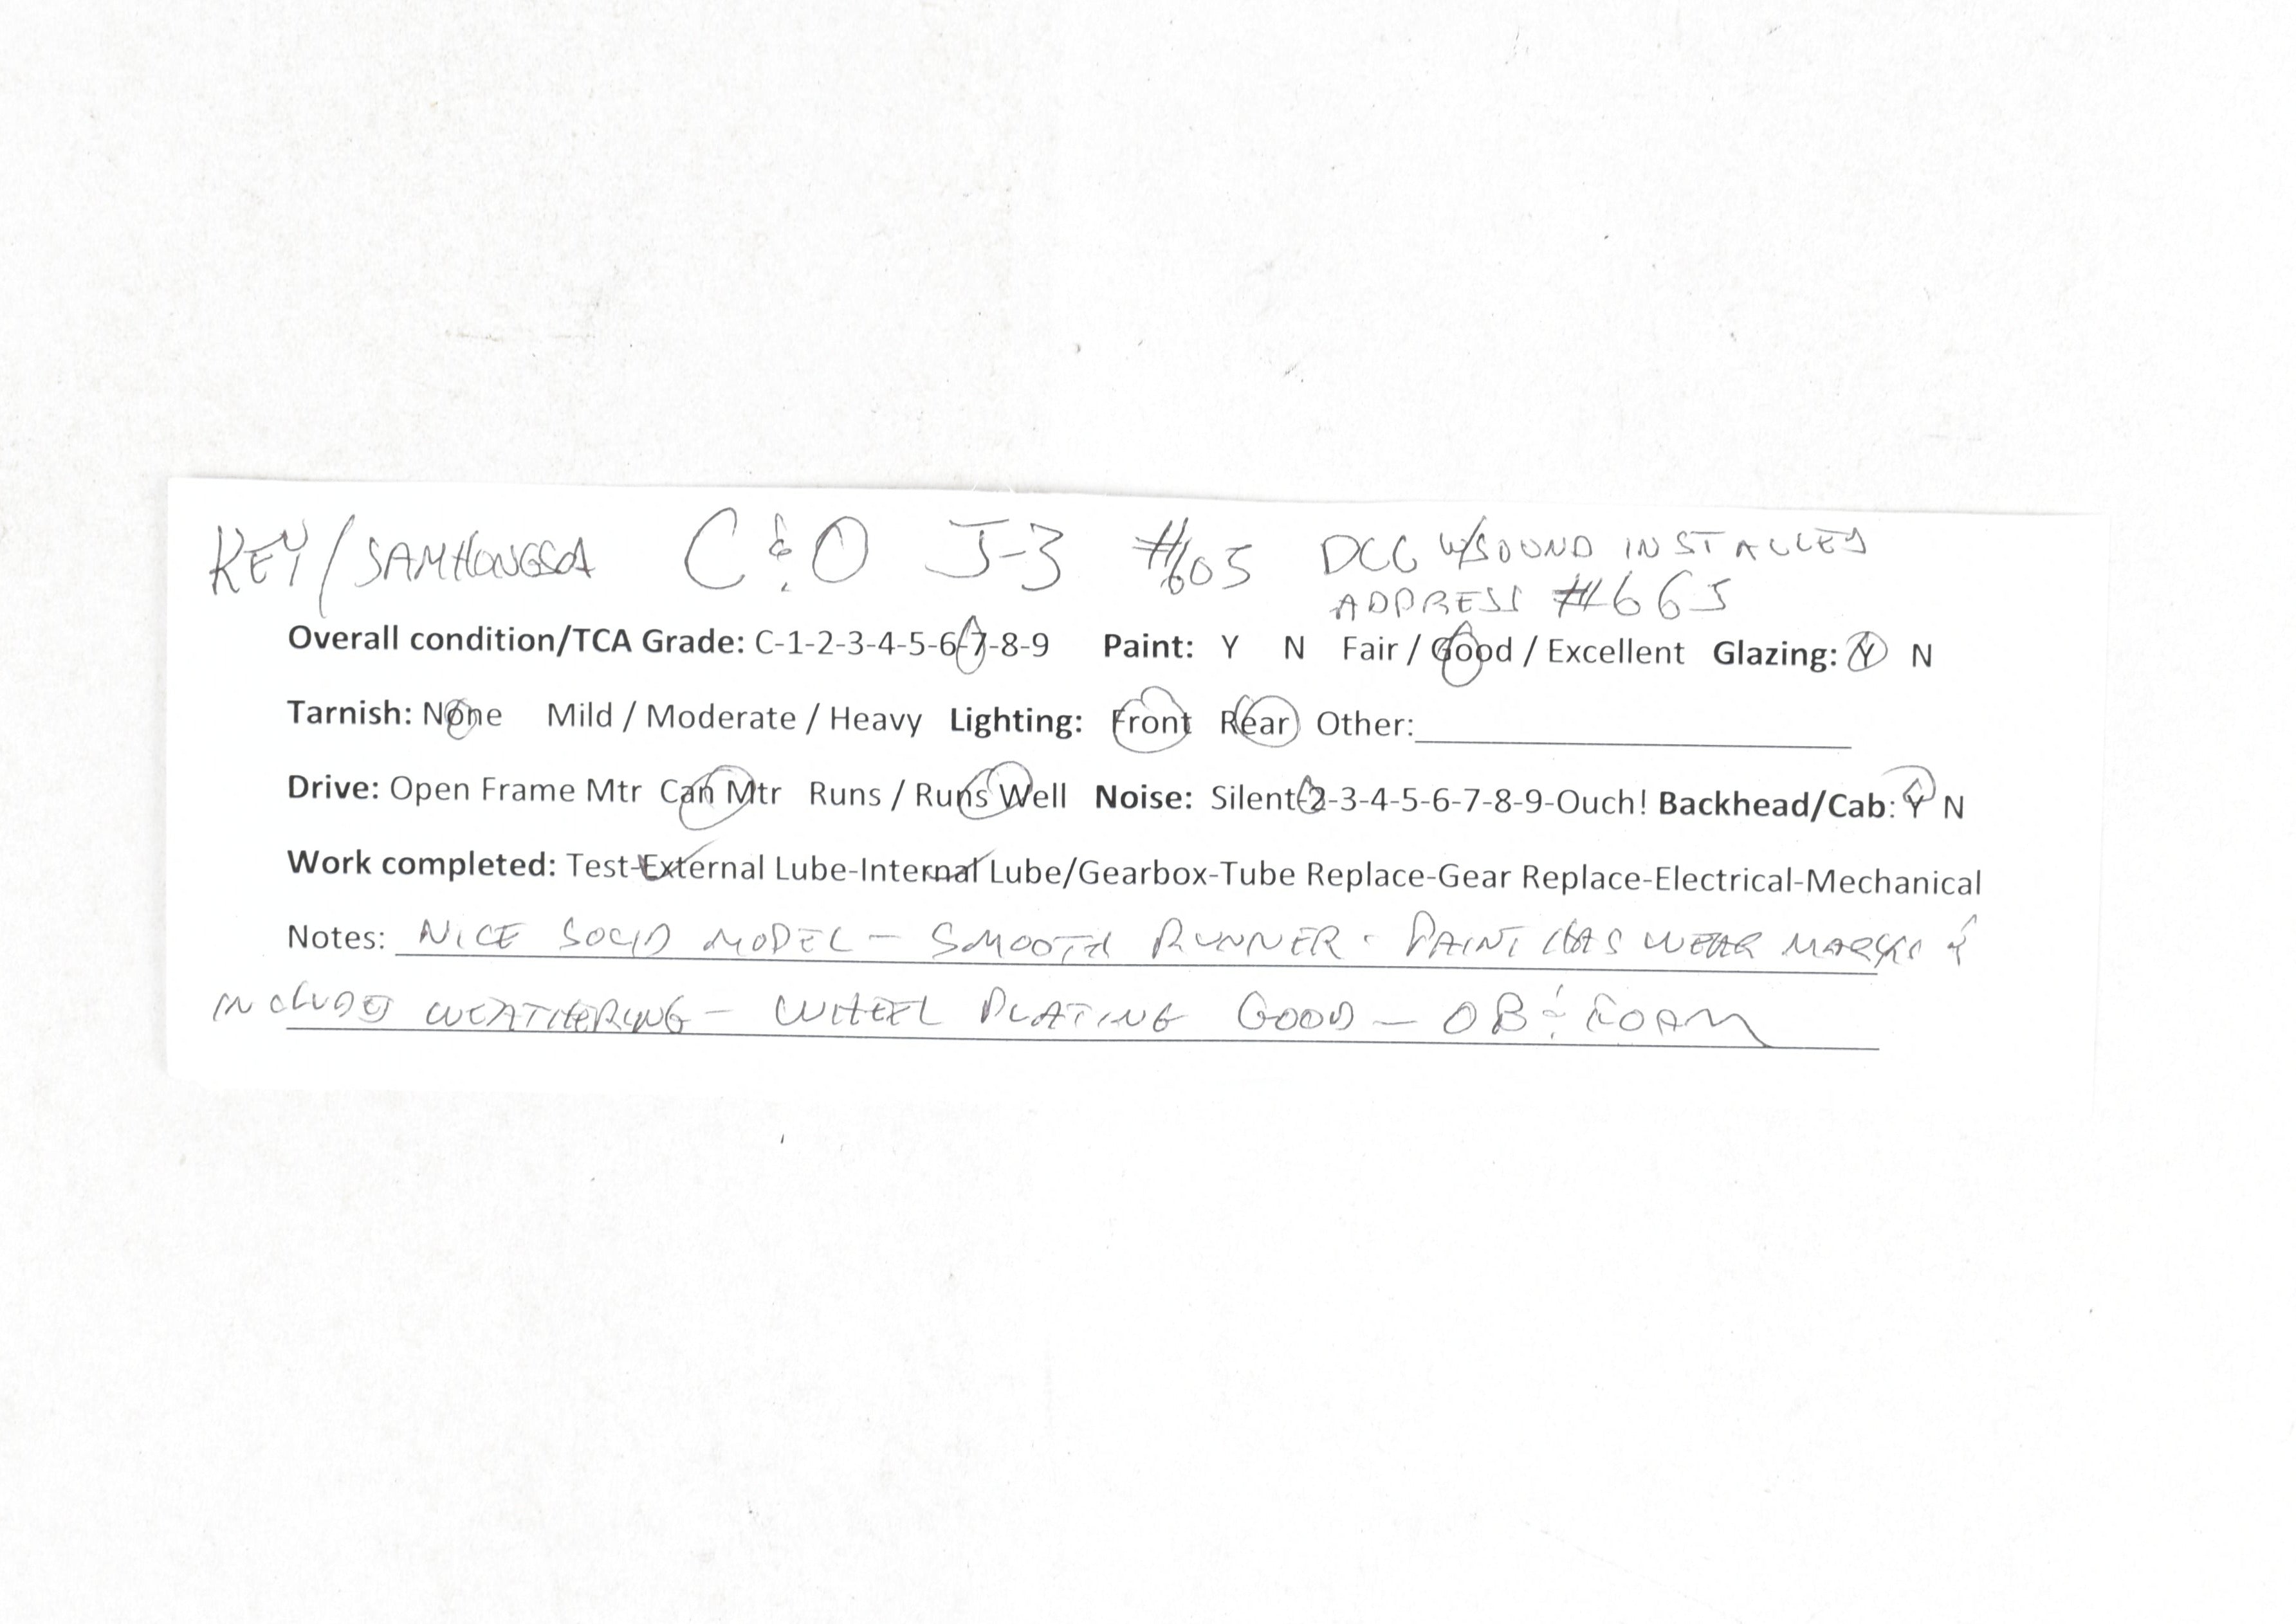 KEY/SAMHONGSA C&O J-3 #605 DCC W/SOUND INSTALLED
ADDRESS #665
Overall condition/TCA Grade: C-1-2-3-4-5-6-7-8-9 Paint: Y N Fair / Good / Excellent Glazing: Y N
Tarnish: None Mild / Moderate / Heavy Lighting: Front Rear Other:
Drive: Open Frame Mtr Can Mtr Runs / Runs Well Noise: Silent-2-3-4-5-6-7-8-9-Ouch! Backhead/Cab: Y N
Work completed: Test-External Lube-Internal Lube/Gearbox-Tube Replace-Gear Replace-Electrical-Mechanical
Notes: NICE SOLID MODEL - SMOOTH RUNNER - PAINT HAS WEAR MARKS &
INCLUDES WEATHERING - WHEEL PLATING GOOD - OB & FOAM